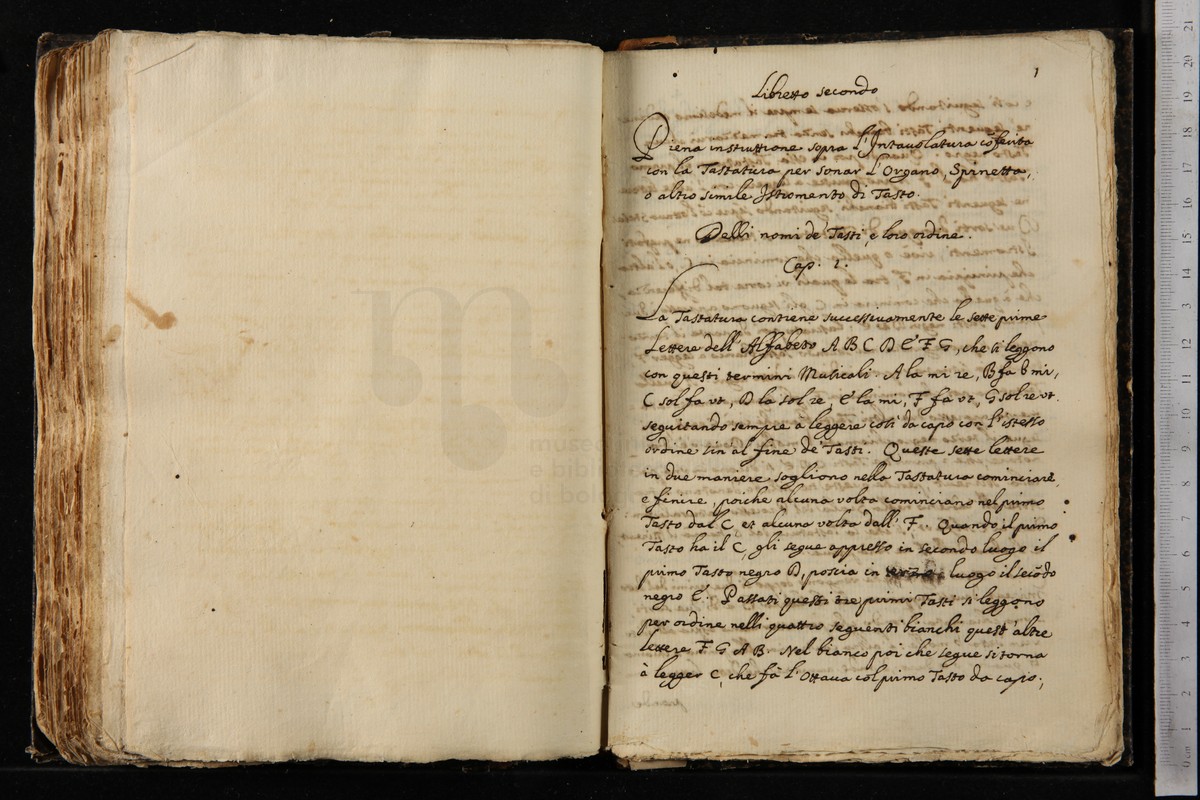 1
Libretto secondo
Piena instruttione sopra l'Intauolatura coferita
con la Tastatura per sonar l'Organo, Spinetta,
o altro simile Istromento di Tasto.
Delli nomi de' Tasti, e loro ordine.
Cap. 1.
La Tastatura contiene successiuamente le sette prime
Lettere dell'Alfabeto A B C D E F G, che si leggono
con questi termini Musicali. A la mi re, B fa b mi,
C sol fa vt, D la sol re, E la mi, F fa vt, G sol re vt.
seguitando sempre à leggere così da capo con l'istesso
ordine sin al fine de' Tasti. Queste sette lettere
in due maniere sogliono nella Tastatura cominciare,
e finire, poiche alcuna volta cominciano nel primo
Tasto dal C et alcuna volta dall'F. Quando il primo
Tasto ha il C, gli segue appresso in secondo luogo il
primo Tasto negro D, poscia in terzo luogo il secōdo
negro E. Passati questi tre primi Tasti si leggono
per ordine nelli quattro seguenti bianchi quest'altre
lettere F G A B. Nel bianco poi che segue si torna
à legger C, che fà l'Ottaua col primo Tasto da capo;
museo
e biblio
di bolog